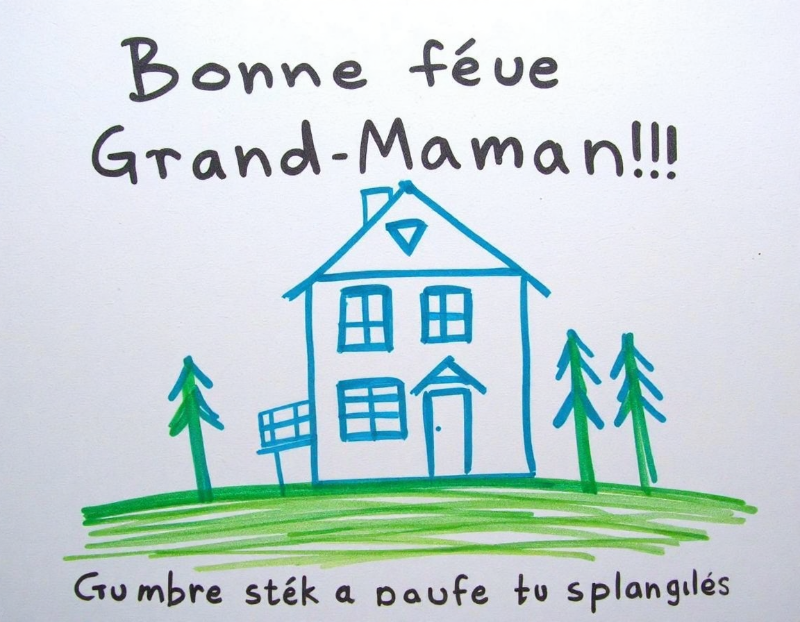 Bonne féue
Grand-Maman!!!
Gumbre sték a paufe tu splangılés